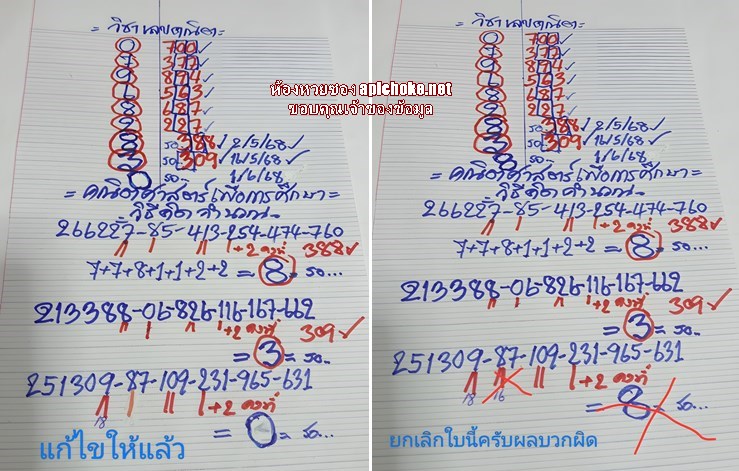 = วิชาเลขคณิต =
0 700 ✓
7 377 ✓
9 894 ✓
6 563 ✓
8 687 ✓
2 227 ✓
8 รอ 388 ✓ 2/5/68 ✓
3 รอ 309 ✓ 16/5/68 ✓
0 รอ 1/6/68
= คณิตศาสตร์เพื่อการศึกษา =
วิธีคิดคำนวณ
266227-85-413-254-474-760
+2 คงที่ 388 ✓
7+7+8+1+1+2+2 = 8 = รอ...
213388-06-826-116-167-662
+2 คงที่ 309 ✓
= 3 = รอ..
251309-87-109-231-965-631
18 +2 คงที่
= 0 = รอ...
แก้ไขให้แล้ว
ห้องหวยซอง apichoke.net
ขอบคุณเจ้าของข้อมูล
= วิชาเลขคณิต =
700 ✓
377 ✓
894 ✓
563 ✓
687 ✓
227 ✓
8 รอ 388 ✓ 2/5/68 ✓
3 รอ 309 ✓ 16/5/68 ✓
รอ 1/6/68
= คณิตศาสตร์เพื่อการศึกษา =
วิธีคิดคำนวณ
266227-85-413-254-474-760
+2 คงที่ 388 ✓
7+7+8+1+1+2+2 = 8 = รอ...
213388-06-826-116-167-662
+2 คงที่ 309 ✓
= 3 = รอ..
251309-87-109-231-965-631
18 16 +2 คงที่
= = รอ...
ยกเลิกใบนี้ครับผลบวกผิด